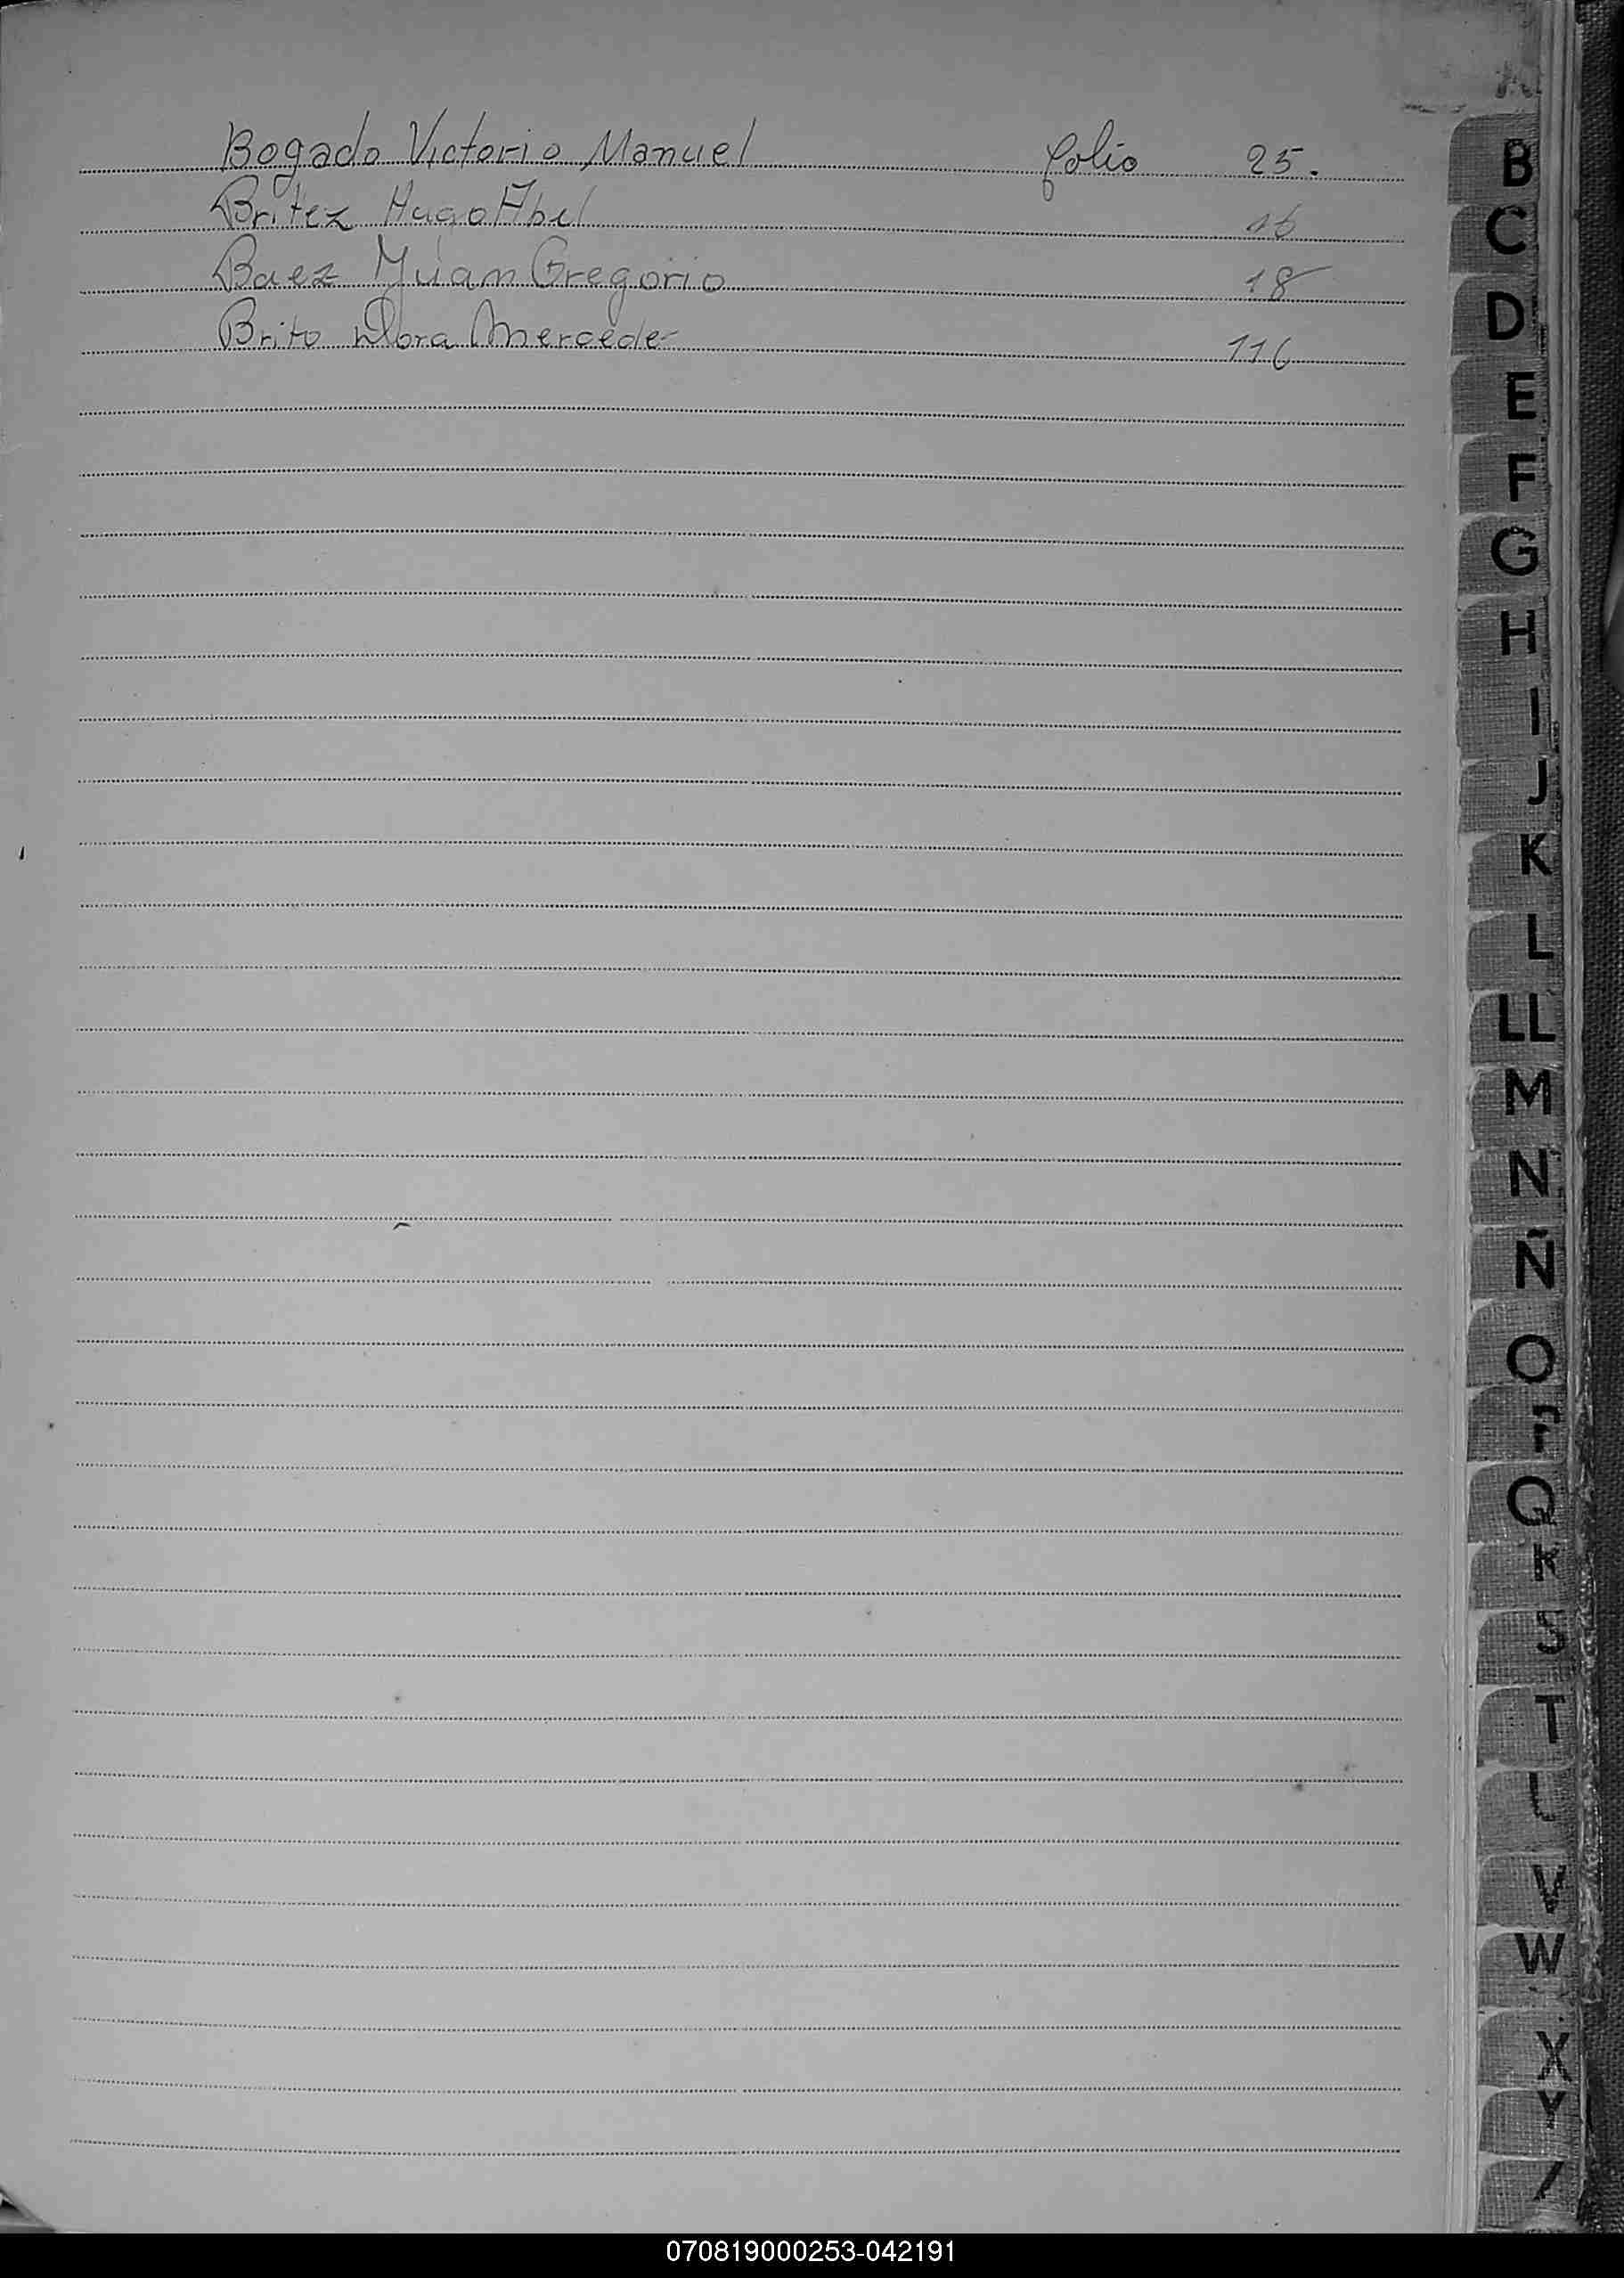 Bogado Victorio Manuel folio 25.
Britez Hugo Abel 16
Baez Juan Gregorio 18
Brito Dora Mercedes 116
B
C
D
E
F
G
H
I
J
K
L
LL
M
N
Ñ
O
P
Q
R
S
T
U
V
W
X
Y
Z
070819000253-042191